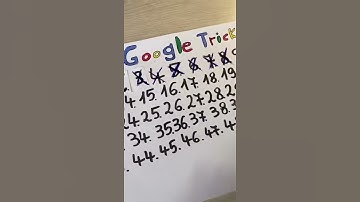 Google Trick
4. 15. 16. 17. 18 19
4. 25. 26. 27. 28. 2
34. 35. 36. 37. 38. 3
44. 45. 46. 47. 4